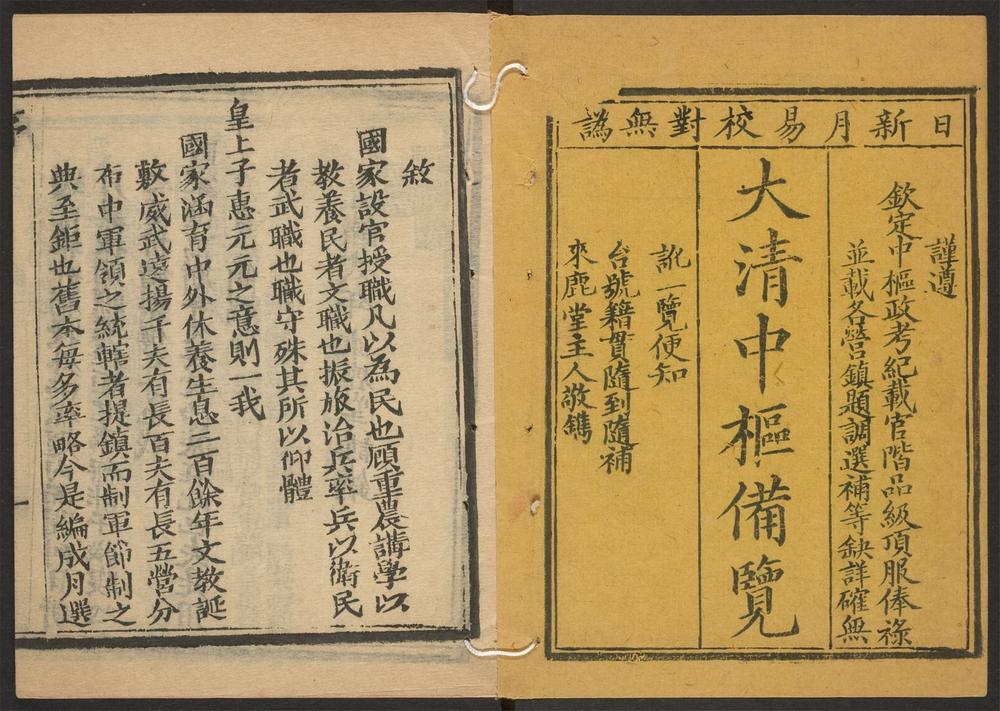 日新月易校對無譌
謹遵
欽定中樞政考紀載官階品級頂服俸祿
並載各營鎮題調選補等缺詳確無
大清中樞備覽
訛一覽便知
台號籍貫隨到隨補
來鹿堂主人敬鐫
敘
國家設官授職凡以為民也顧重農講學以
教養民者文職也振旅治兵率兵以衛民
者武職也職守殊其所以仰體
皇上子惠元元之意則一我
國家涵育中外休養生息二百餘年文教誕
敷威武遠揚千夫有長百夫有長五營分
布中軍領之統轄者提鎮而制軍節制之
典至鉅也舊本每多率略今是編成月選